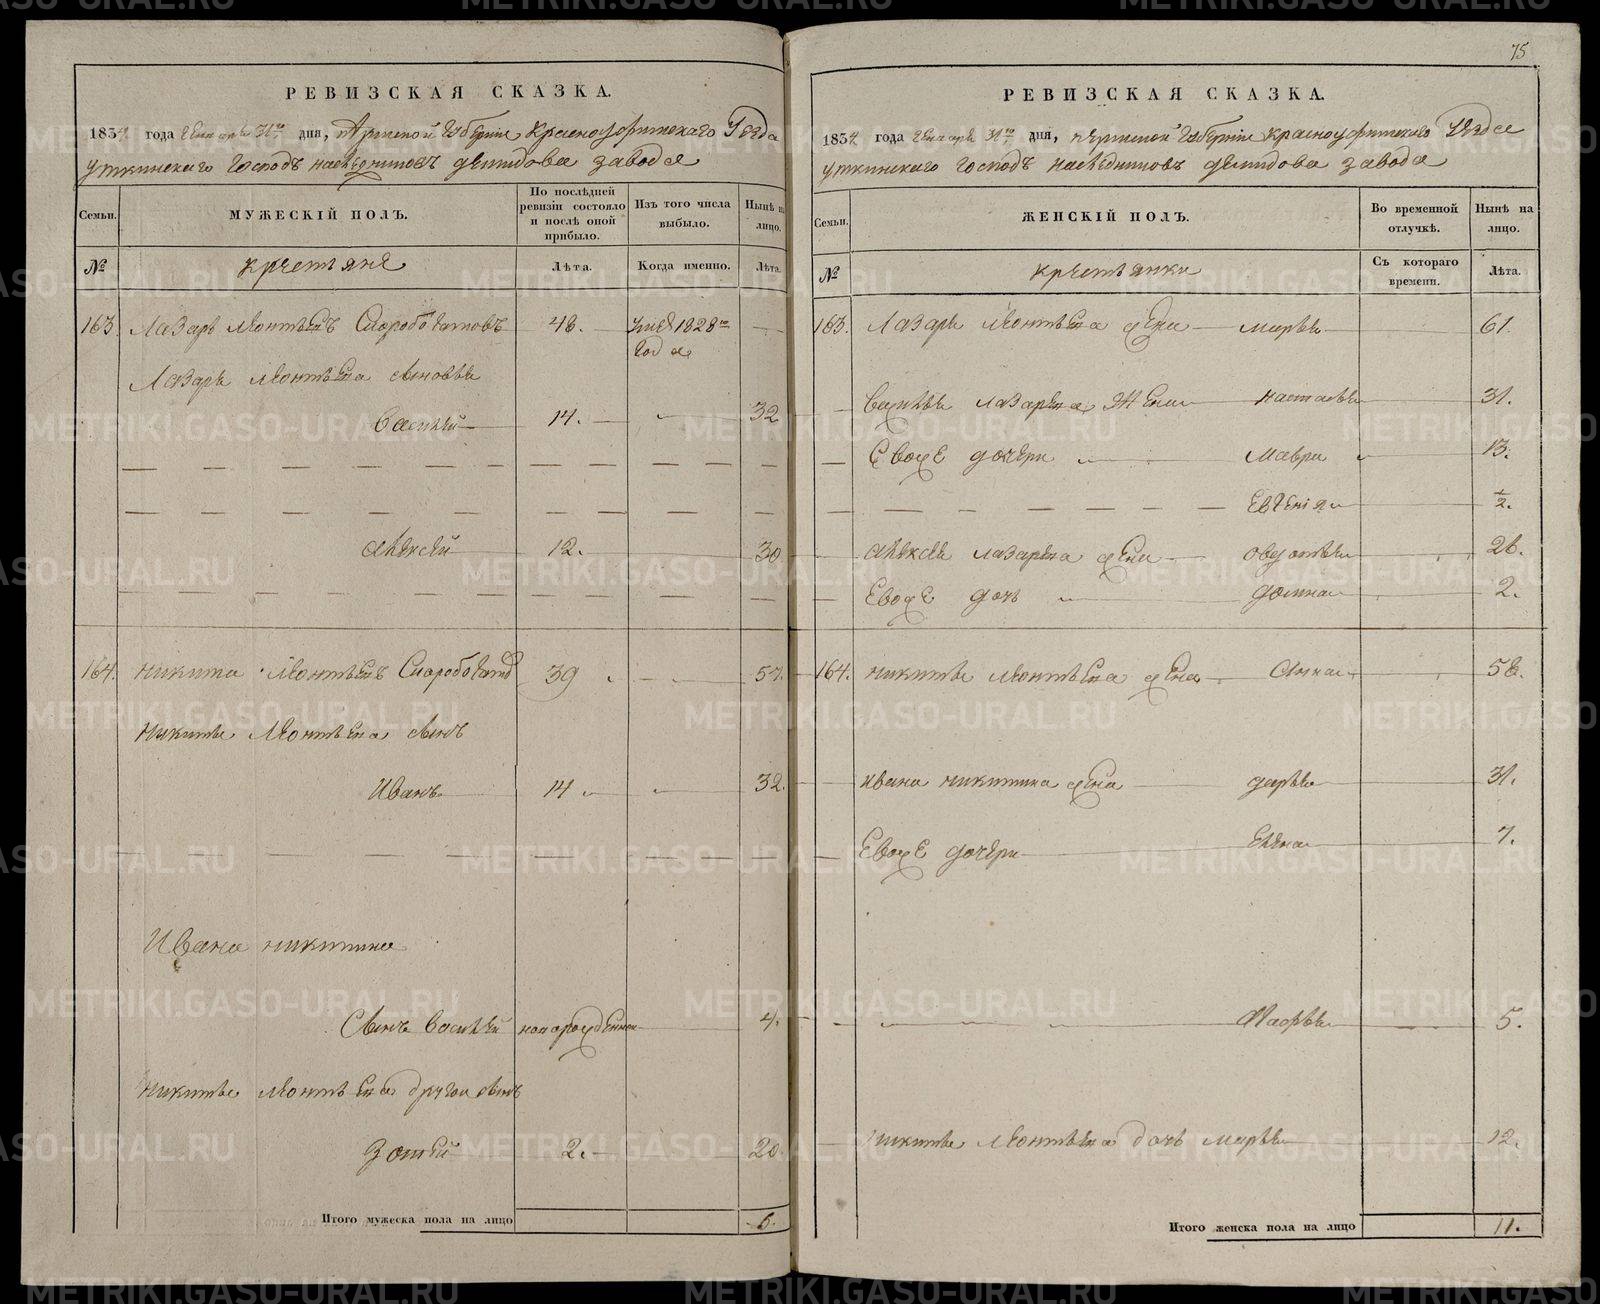 75
РЕВИЗСКАЯ СКАЗКА.
1834 года Генваря 31го дня, Пермской Губернии Красноуфимскаго Уезда
Уткинскаго Господъ наследниковъ Демидова завода
Семьи.
МУЖЕСКІЙ ПОЛЪ.
По послѣдней ревизіи состояло и послѣ оной прибыло.
Изъ того числа выбыло.
Нынѣ на лицо.
№
крестьяне
Лѣта.
Когда именно.
Лѣта.
163. Лазарь Леонтьевъ Скоробогатовъ 48. 1828го
года
Лазаря Леонтьева сыновья
Василей 14. 32
Алексей 12. 30
164. Никита Леонтьевъ 39 57.
Никиты Леонтьева сынъ
Иванъ 14 32.
Ивана Никитина
Сынъ Василей новорожденной 4.
Никиты Леонтьева другой сынъ
Зотей 2. 20.
Итого мужеска пола на лицо 6.
РЕВИЗСКАЯ СКАЗКА.
1834 года Генваря 31го дня, Пермской Губернии Красноуфимскаго Уезда
Уткинскаго Господъ наследниковъ Демидова завода
Семьи.
ЖЕНСКІЙ ПОЛЪ.
Во временной отлучкѣ.
Нынѣ на лицо.
№
крестьянки
Съ котораго времени.
Лѣта.
163. Лазаря Леонтьева жена Марья 61
Василья Лазарева жена Настасья 31.
Евоже дочери Мавра 13.
Евгения ½.
Алексея Лазарева жена Овдотья 26.
Евоже дочь Домна 2.
164. Никиты Леонтьева жена Анна 56.
Ивана Никитина жена Дарья 31.
Евоже дочери Елена 7.
Марья 5.
Никиты Леонтьева дочь Марья 12.
Итого женска пола на лицо 11.
METRIKI.GASO-URAL.RU